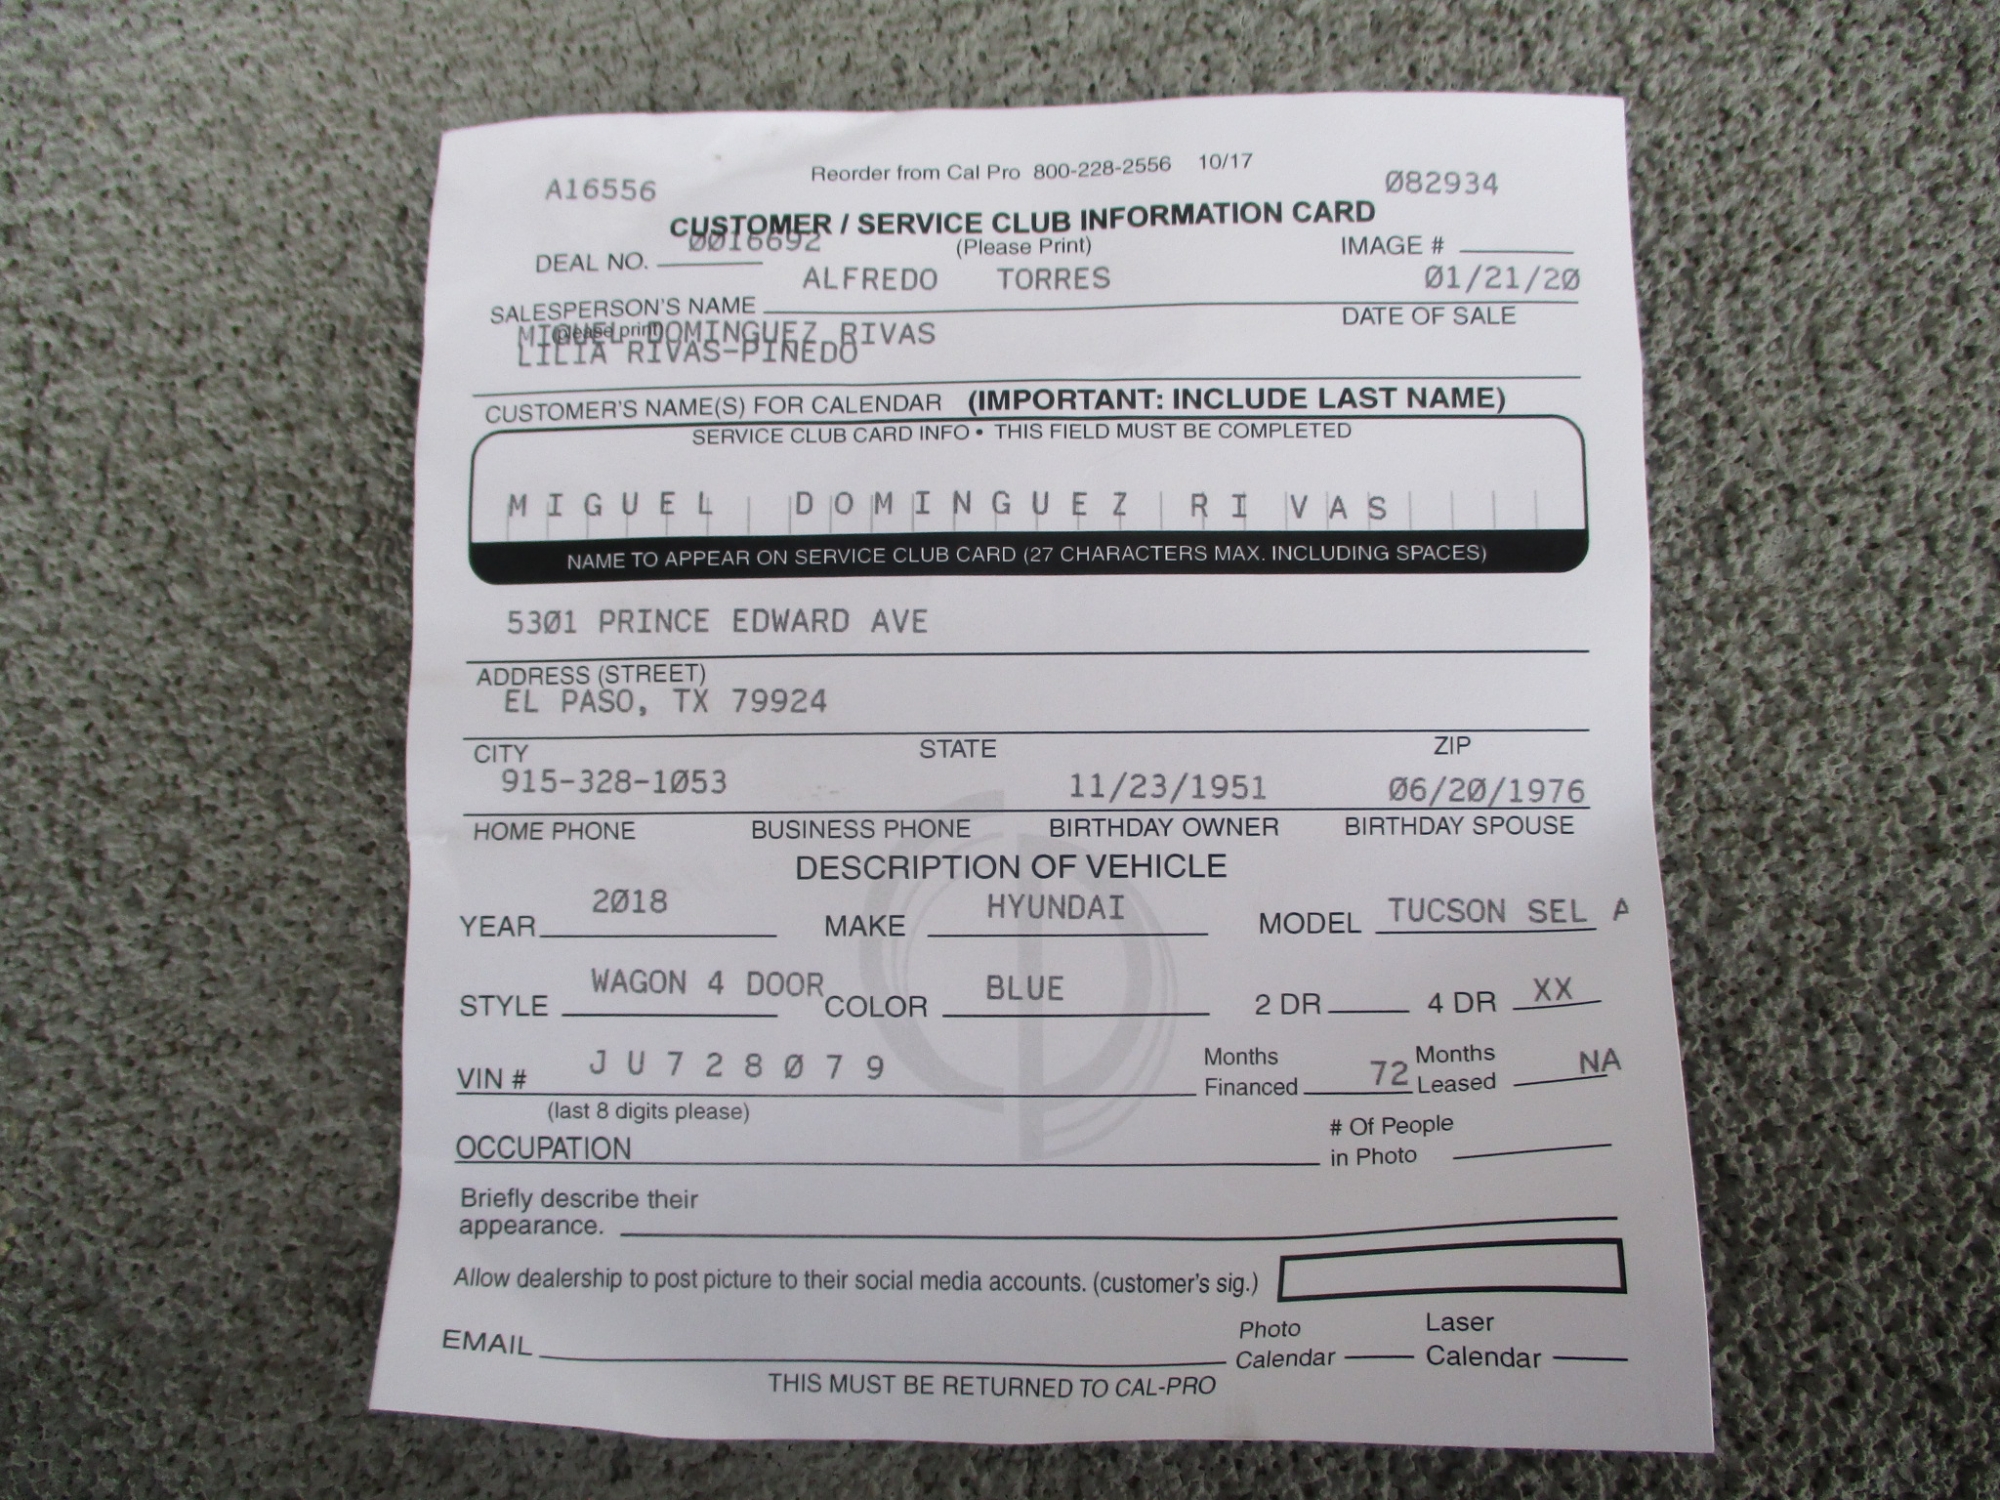 Reorder from Cal Pro 800-228-2556 10/17
A16556 Ø82934
CUSTOMER / SERVICE CLUB INFORMATION CARD
DEAL NO. ØØ16692 (Please Print) IMAGE #
ALFREDO TORRES Ø1/21/2Ø
SALESPERSON'S NAME DATE OF SALE
(please print)
MIGUEL DOMINGUEZ RIVAS
LILIA RIVAS-PINEDO
CUSTOMER'S NAME(S) FOR CALENDAR (IMPORTANT: INCLUDE LAST NAME)
SERVICE CLUB CARD INFO • THIS FIELD MUST BE COMPLETED
MIGUEL DOMINGUEZ RIVAS
NAME TO APPEAR ON SERVICE CLUB CARD (27 CHARACTERS MAX. INCLUDING SPACES)
53Ø1 PRINCE EDWARD AVE
ADDRESS (STREET)
EL PASO, TX 79924
CITY STATE ZIP
915-328-1Ø53 11/23/1951 Ø6/2Ø/1976
HOME PHONE BUSINESS PHONE BIRTHDAY OWNER BIRTHDAY SPOUSE
DESCRIPTION OF VEHICLE
YEAR 2Ø18 MAKE HYUNDAI MODEL TUCSON SEL A
STYLE WAGON 4 DOOR COLOR BLUE 2 DR 4 DR XX
VIN # JU728Ø79 Months Financed 72 Months Leased NA
(last 8 digits please)
OCCUPATION # Of People in Photo
Briefly describe their
appearance.
Allow dealership to post picture to their social media accounts. (customer's sig.)
EMAIL Photo Calendar Laser Calendar
THIS MUST BE RETURNED TO CAL-PRO